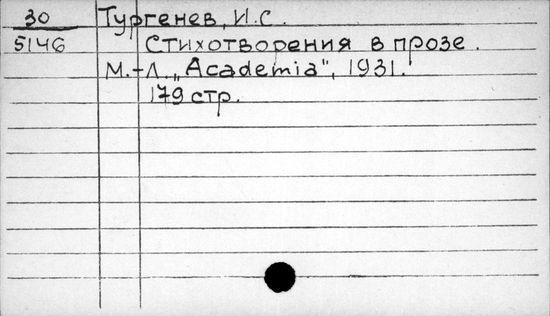 30 Тургенев, И.С.
5146 Стихотворения в прозе.
М.-Л. „Academia", 1931.
179 стр.